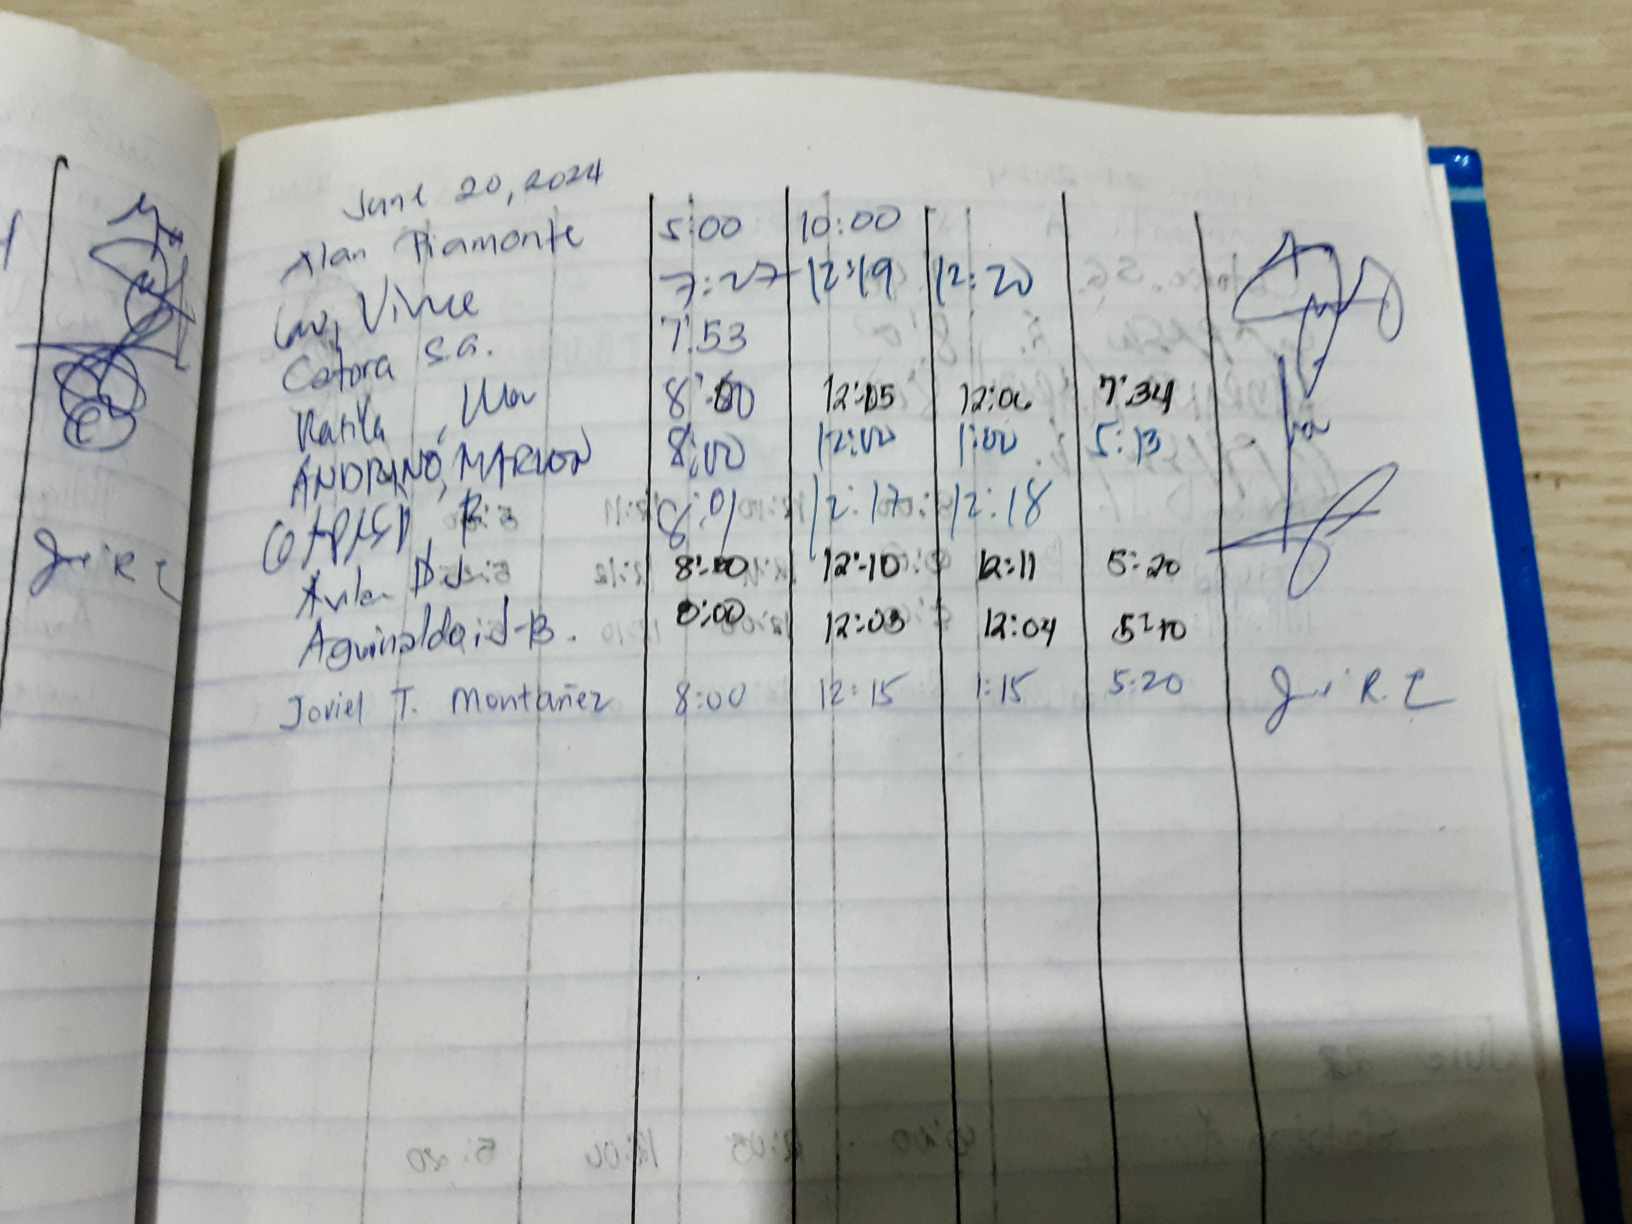 June 20, 2024
Alan Piamonte 5:00 10:00
Vince 7:27 12:19 12:20
Catora S.G. 7:53
8:00 12:05 12:06 7:34
ANDRINO, MARLON 8:00 12:00 1:00 5:13
8:01 12:17 12:18
Avila DJ 8:00 12:10 12:11 5:20
Aguinaldo, J-B. 8:00 12:03 12:04 5:10
Joviel T. Montañez 8:00 12:15 1:15 5:20